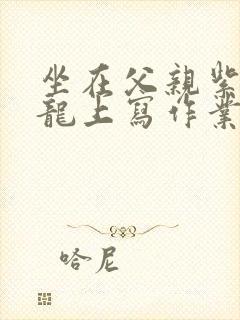 坐在父親紫
龍上寫作業
哈尼